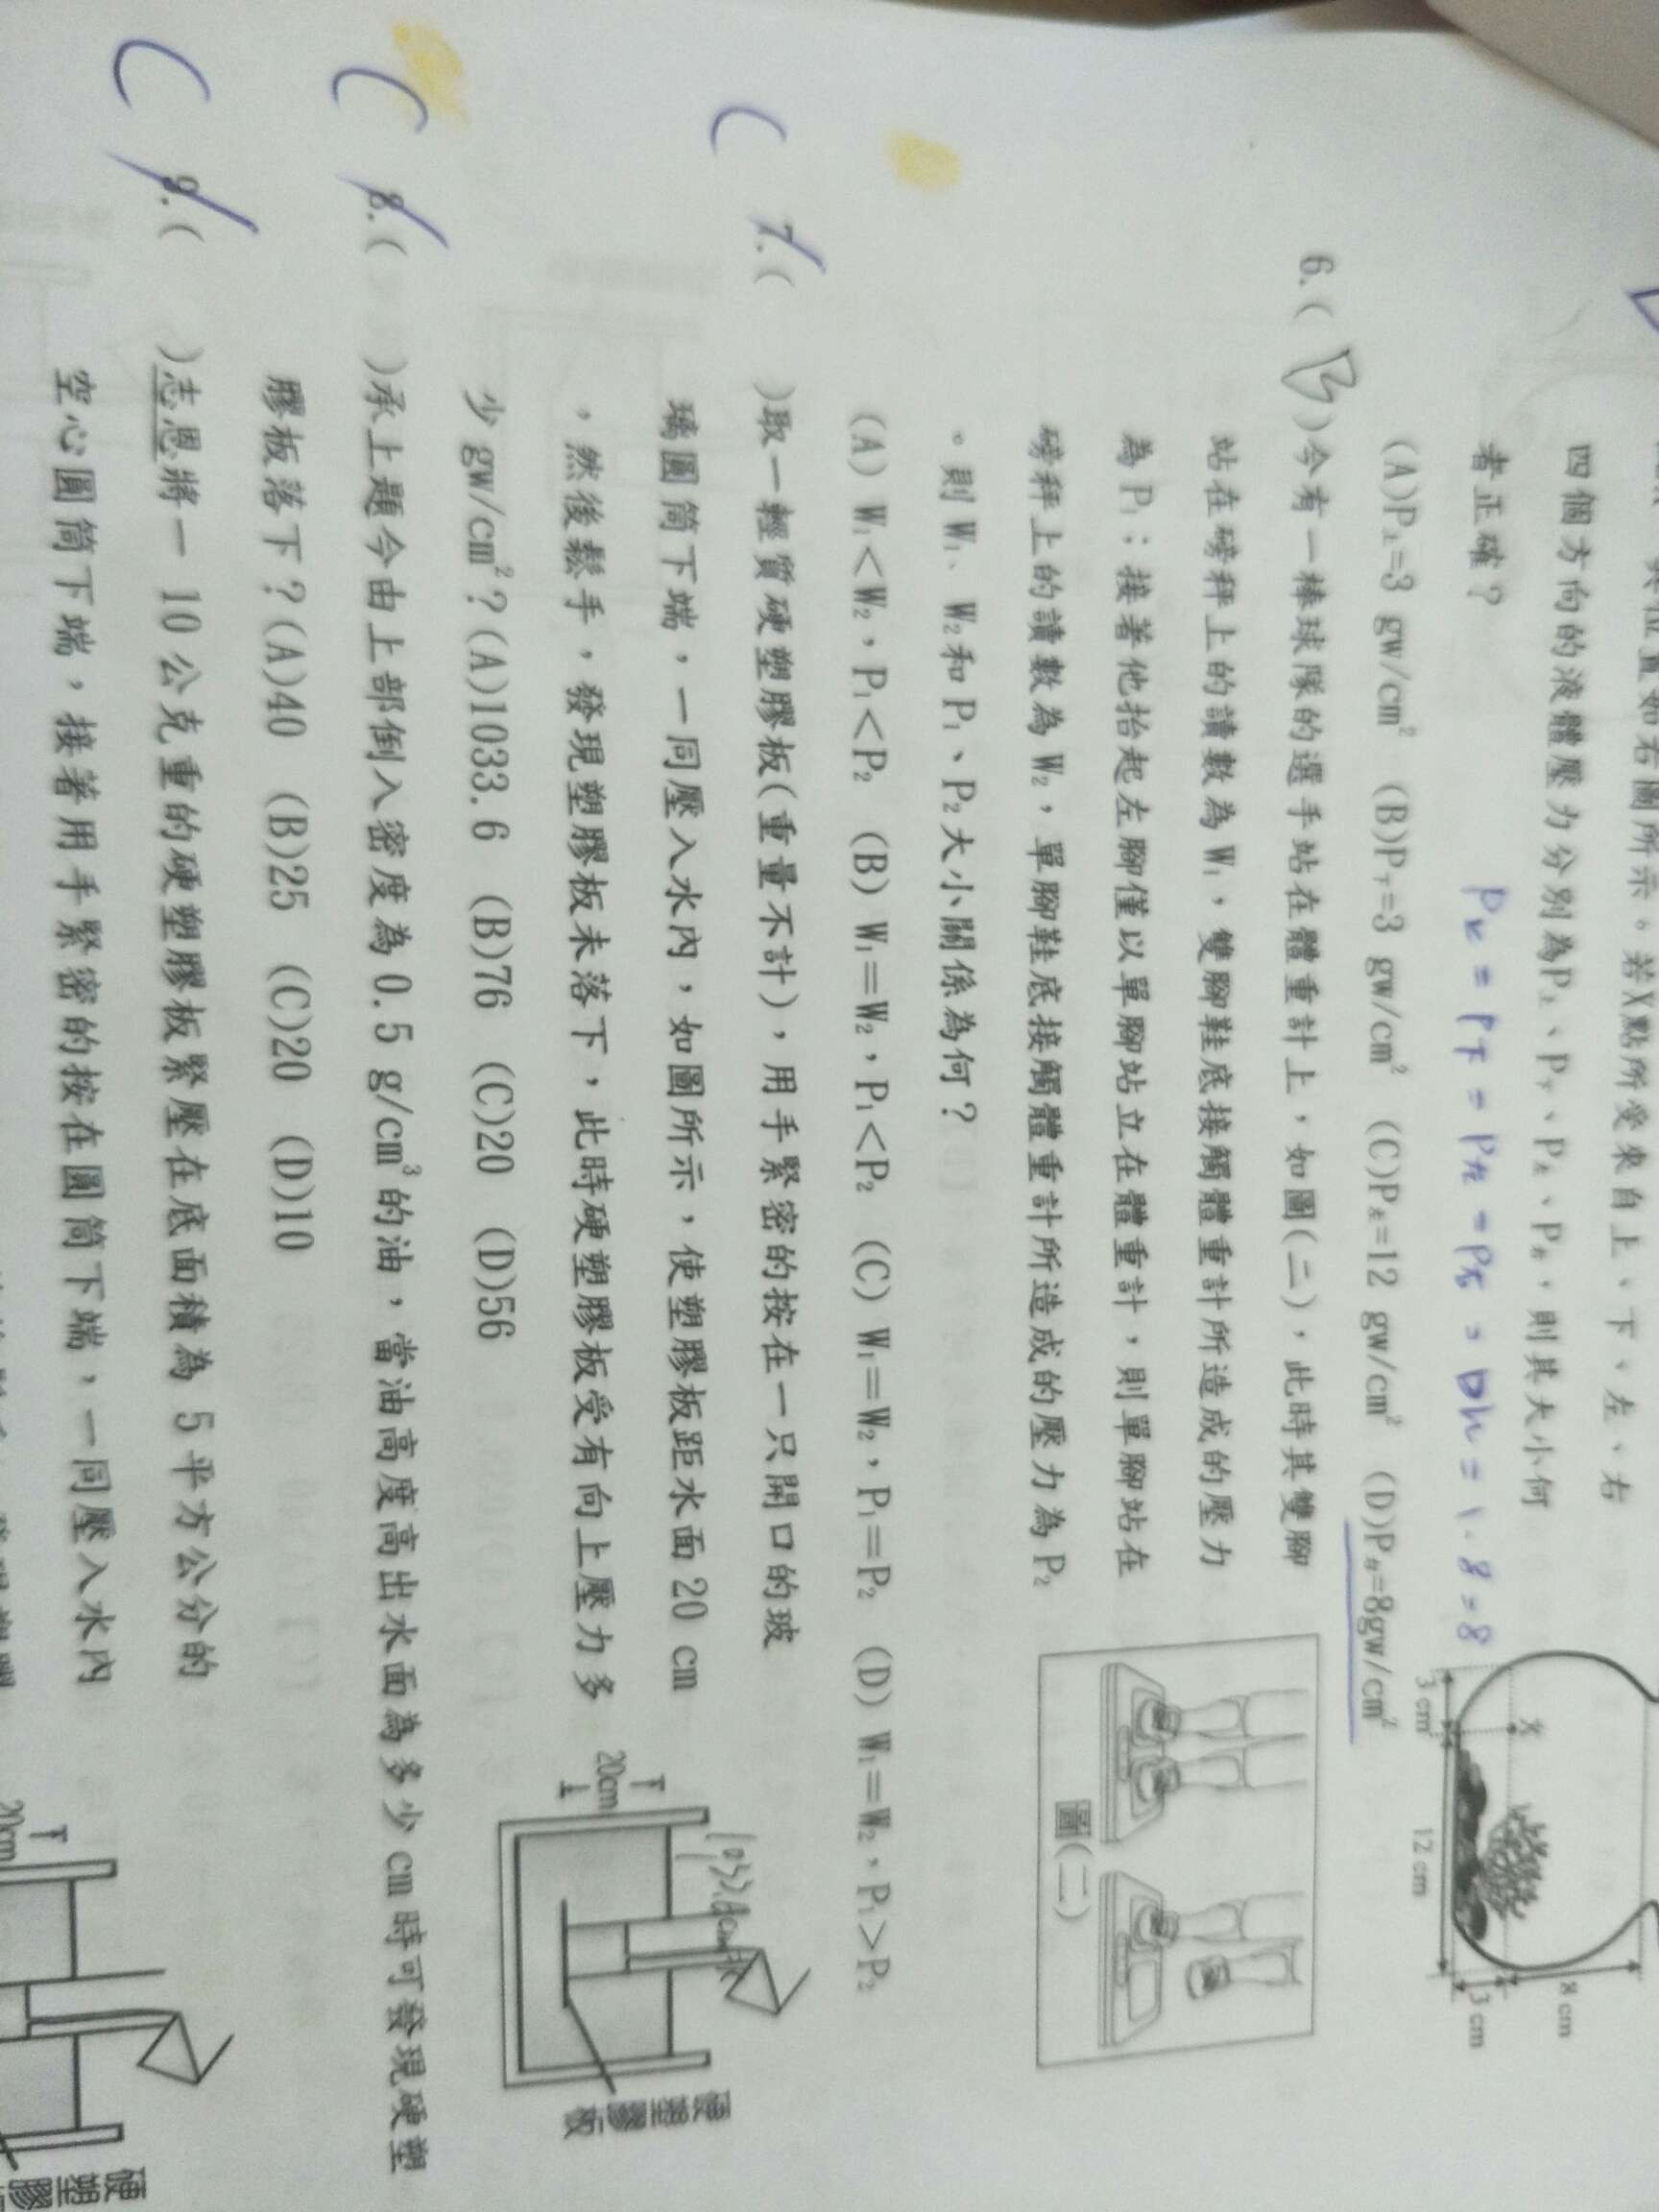 四個方向的液體壓力分別為P上、P下、P左、P右，則其大小何
者正確？
P上=P下=P左=P右=Dh=1.8=8
(A)P上=3 gw/cm² (B)P下=3 gw/cm² (C)P左=12 gw/cm² (D)P右=8gw/cm²
X
3 cm
12 cm
8 cm
3 cm
6.( B )今有一棒球隊的選手站在體重計上，如圖(二)，此時其雙腳
站在磅秤上的讀數為W₁，雙腳鞋底接觸體重計所造成的壓力
為P₁；接著他抬起左腳僅以單腳站立在體重計，則單腳站在
磅秤上的讀數為W₂，單腳鞋底接觸體重計所造成的壓力為P₂
。則W₁、W₂和P₁、P₂大小關係為何？
(A) W₁＜W₂，P₁＜P₂ (B) W₁＝W₂，P₁＜P₂ (C) W₁＝W₂，P₁＝P₂ (D) W₁＝W₂，P₁＞P₂
圖(二)
7.( )取一輕質硬塑膠板(重量不計)，用手緊密的按在一只開口的玻
璃圓筒下端，一同壓入水內，如圖所示，使塑膠板距水面20 cm
，然後鬆手，發現塑膠板未落下，此時硬塑膠板受有向上壓力多
少gw/cm²？(A)1033.6 (B)76 (C)20 (D)56
20cm
硬塑膠板
8.( )承上題今由上部倒入密度為0.5 g/cm³的油，當油高度高出水面為多少cm時可發現硬塑
膠板落下？(A)40 (B)25 (C)20 (D)10
9.( )志恩將一 10公克重的硬塑膠板緊壓在底面積為 5平方公分的
空心圓筒下端，接著用手緊密的按在圓筒下端，一同壓入水內
20cm
硬塑膠